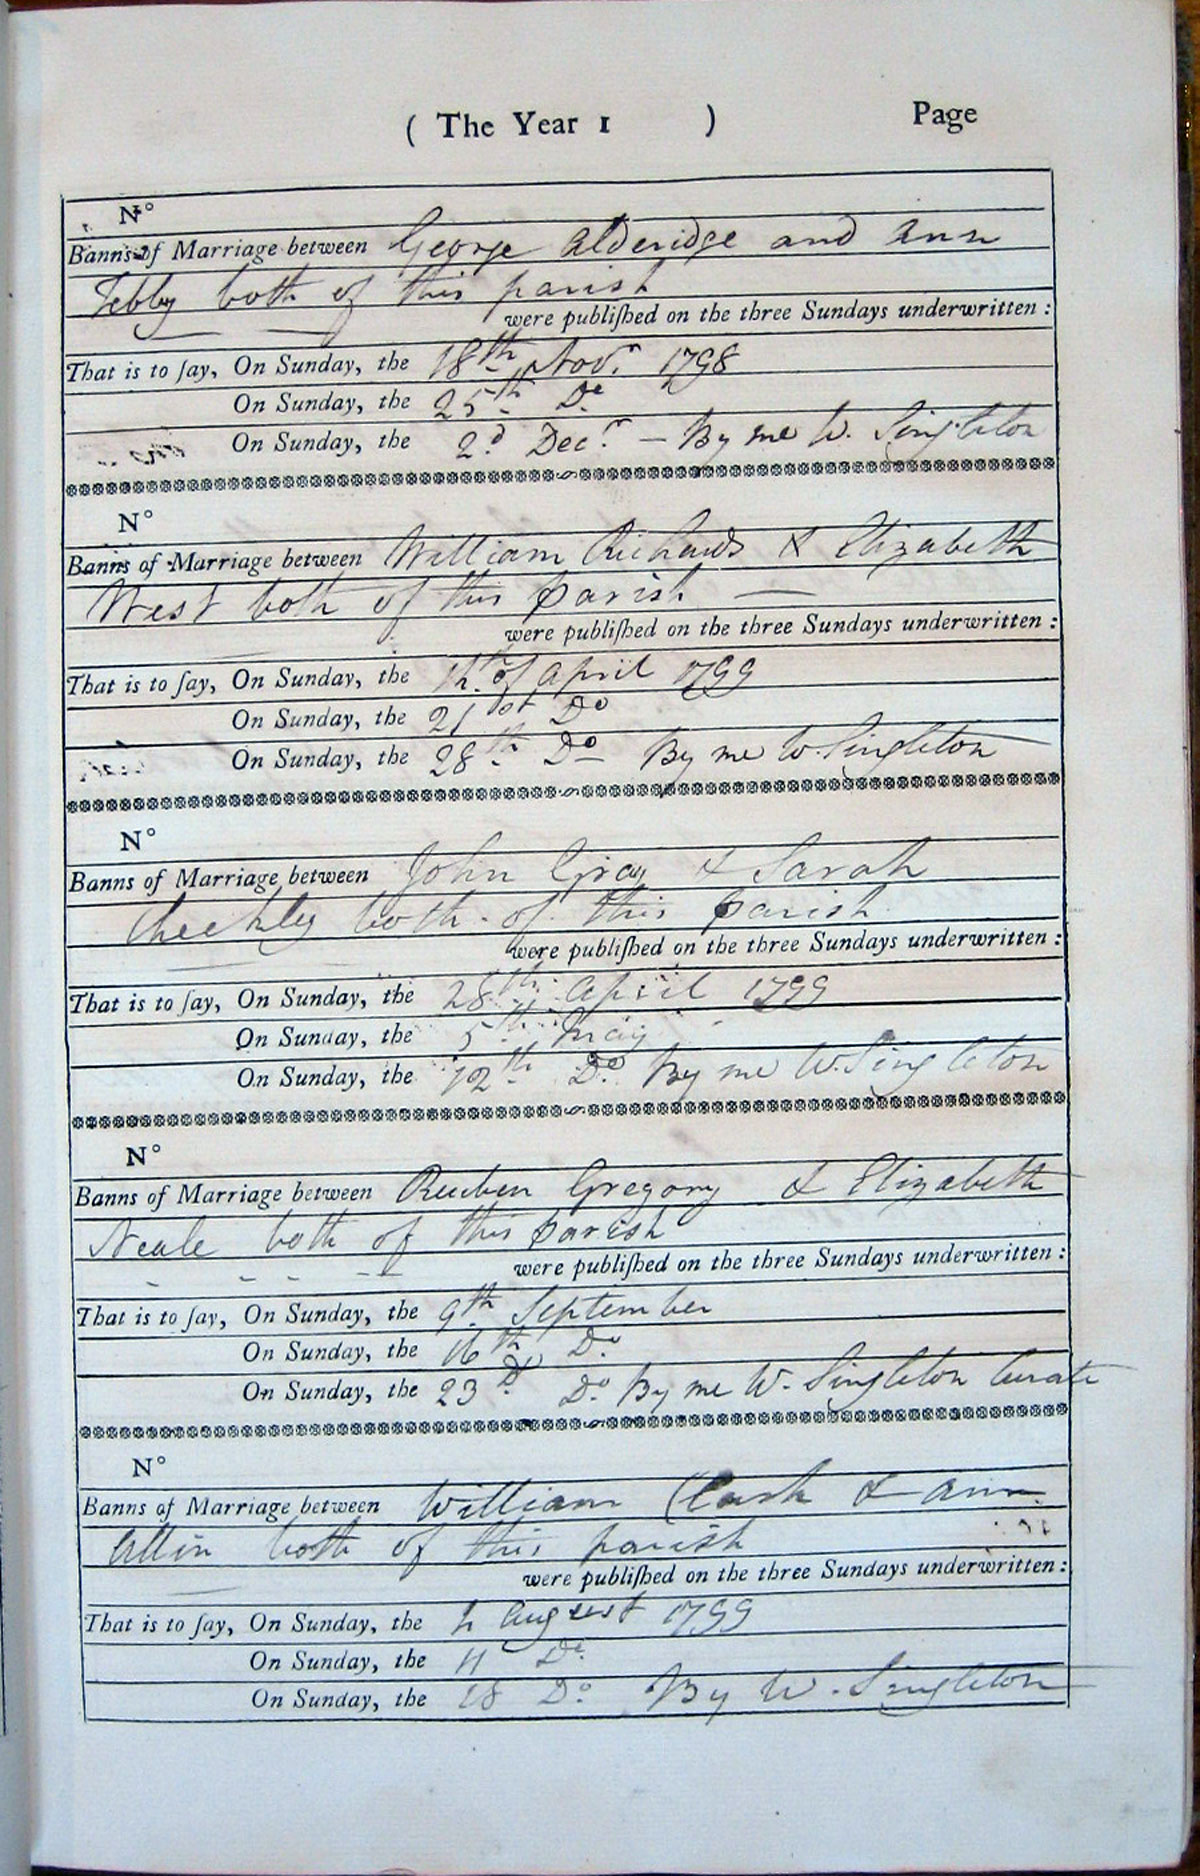 ( The Year 1 ) Page
N°
Banns of Marriage between George Alderidge and Ann
Tebby both of this parish
were publiſhed on the three Sundays underwritten :
That is to ſay, On Sunday, the 18th Novr. 1798
On Sunday, the 25th Do
On Sunday, the 2d Decr. – By me W. Singleton
N°
Banns of Marriage between William Richards & Elizabeth
West both of this parish —
were publiſhed on the three Sundays underwritten :
That is to ſay, On Sunday, the 14th of April 1799
On Sunday, the 21st Do
On Sunday, the 28th Do By me W. Singleton
N°
Banns of Marriage between John Gray & Sarah
Checkley both of this parish
were publiſhed on the three Sundays underwritten :
That is to ſay, On Sunday, the 28th April 1799
On Sunday, the 5th May
On Sunday, the 12th Do By me W. Singleton
N°
Banns of Marriage between Reuben Gregory & Elizabeth
Neale both of this parish
were publiſhed on the three Sundays underwritten :
That is to ſay, On Sunday, the 9th September
On Sunday, the 16th Do
On Sunday, the 23d Do By me W. Singleton Curate
N°
Banns of Marriage between William & Ann
Allin both of this parish
were publiſhed on the three Sundays underwritten :
That is to ſay, On Sunday, the 4 August 1799
On Sunday, the 11 Do
On Sunday, the 18 Do By W. Singleton